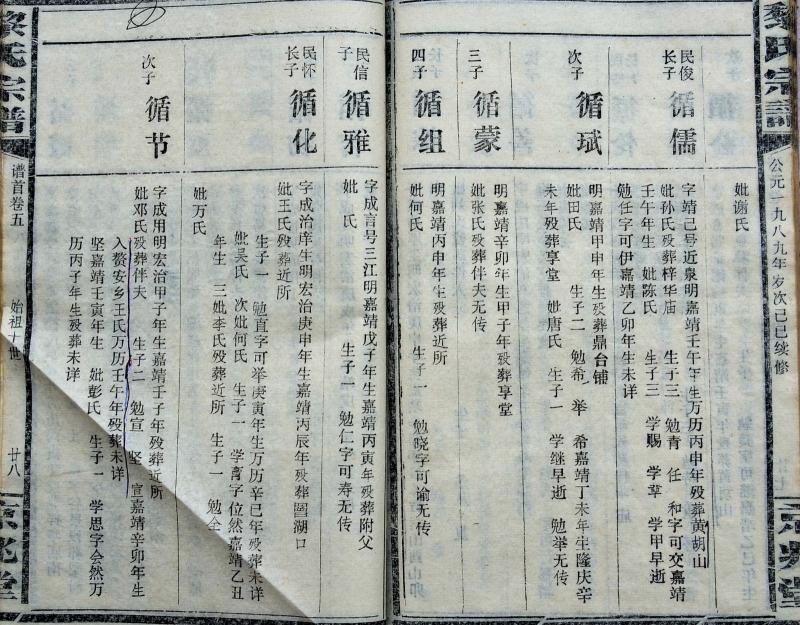 黎氏宗譜
公元一九八九年岁次己巳续修
妣谢氏
民俊
长子
循儒
字靖己号近泉明嘉靖壬午年生万历丙申年殁葬黄胡山
妣孙氏殁葬梓华庙 生子三 勉青 任 和字可交嘉靖
壬午年生 妣陈氏 生子三 学赐 学荤 学甲早逝
勉任字可伊嘉靖乙卯年生未详
次子
循珷
明嘉靖甲申年生殁葬鼎台铺
妣田氏 生子二 勉希 举 希嘉靖丁未年生隆庆辛
未年殁葬享堂 妣唐氏 生子一 学继早逝 勉举无传
三子
循蒙
明嘉靖辛卯年生甲子年殁葬享堂
妣张氏殁葬伴夫无传
四子
循组
明嘉靖丙申年生殁葬近所
妣何氏 生子一 勉晓字可谕无传
民信
子
循雅
字成言号三江明嘉靖戊子年生嘉靖丙寅年殁葬附父
妣 氏 生子一 勉仁字可寿无传
民怀
长子
循化
字成治庠生明宏治庚申年生嘉靖丙辰年殁葬罾湖口
妣王氏殁葬近所
生子一 勉直字可举庚寅年生万历辛巳年殁葬未详
妣吴氏 次妣何氏 生子一 学膏字位然嘉靖乙丑
年生 三妣李氏殁葬近所 生子一 勉全
妣万氏
次子
循节
字成用明宏治甲子年生嘉靖壬子年殁葬近所
妣邓氏殁葬伴夫 生子二 勉宣 坚 宣嘉靖辛卯年生
入赘安乡王氏万历壬午年殁葬未详
坚嘉靖壬寅年生 妣彭氏 生子一 学思字会然万
历丙子年生殁葬未详
黎氏宗谱
谱首卷五
始祖十世
廿八